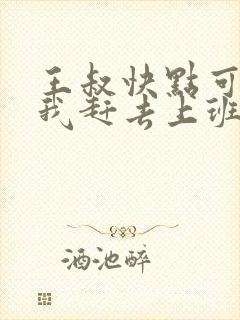 王叔快點可
我赶去上班
酒池醉